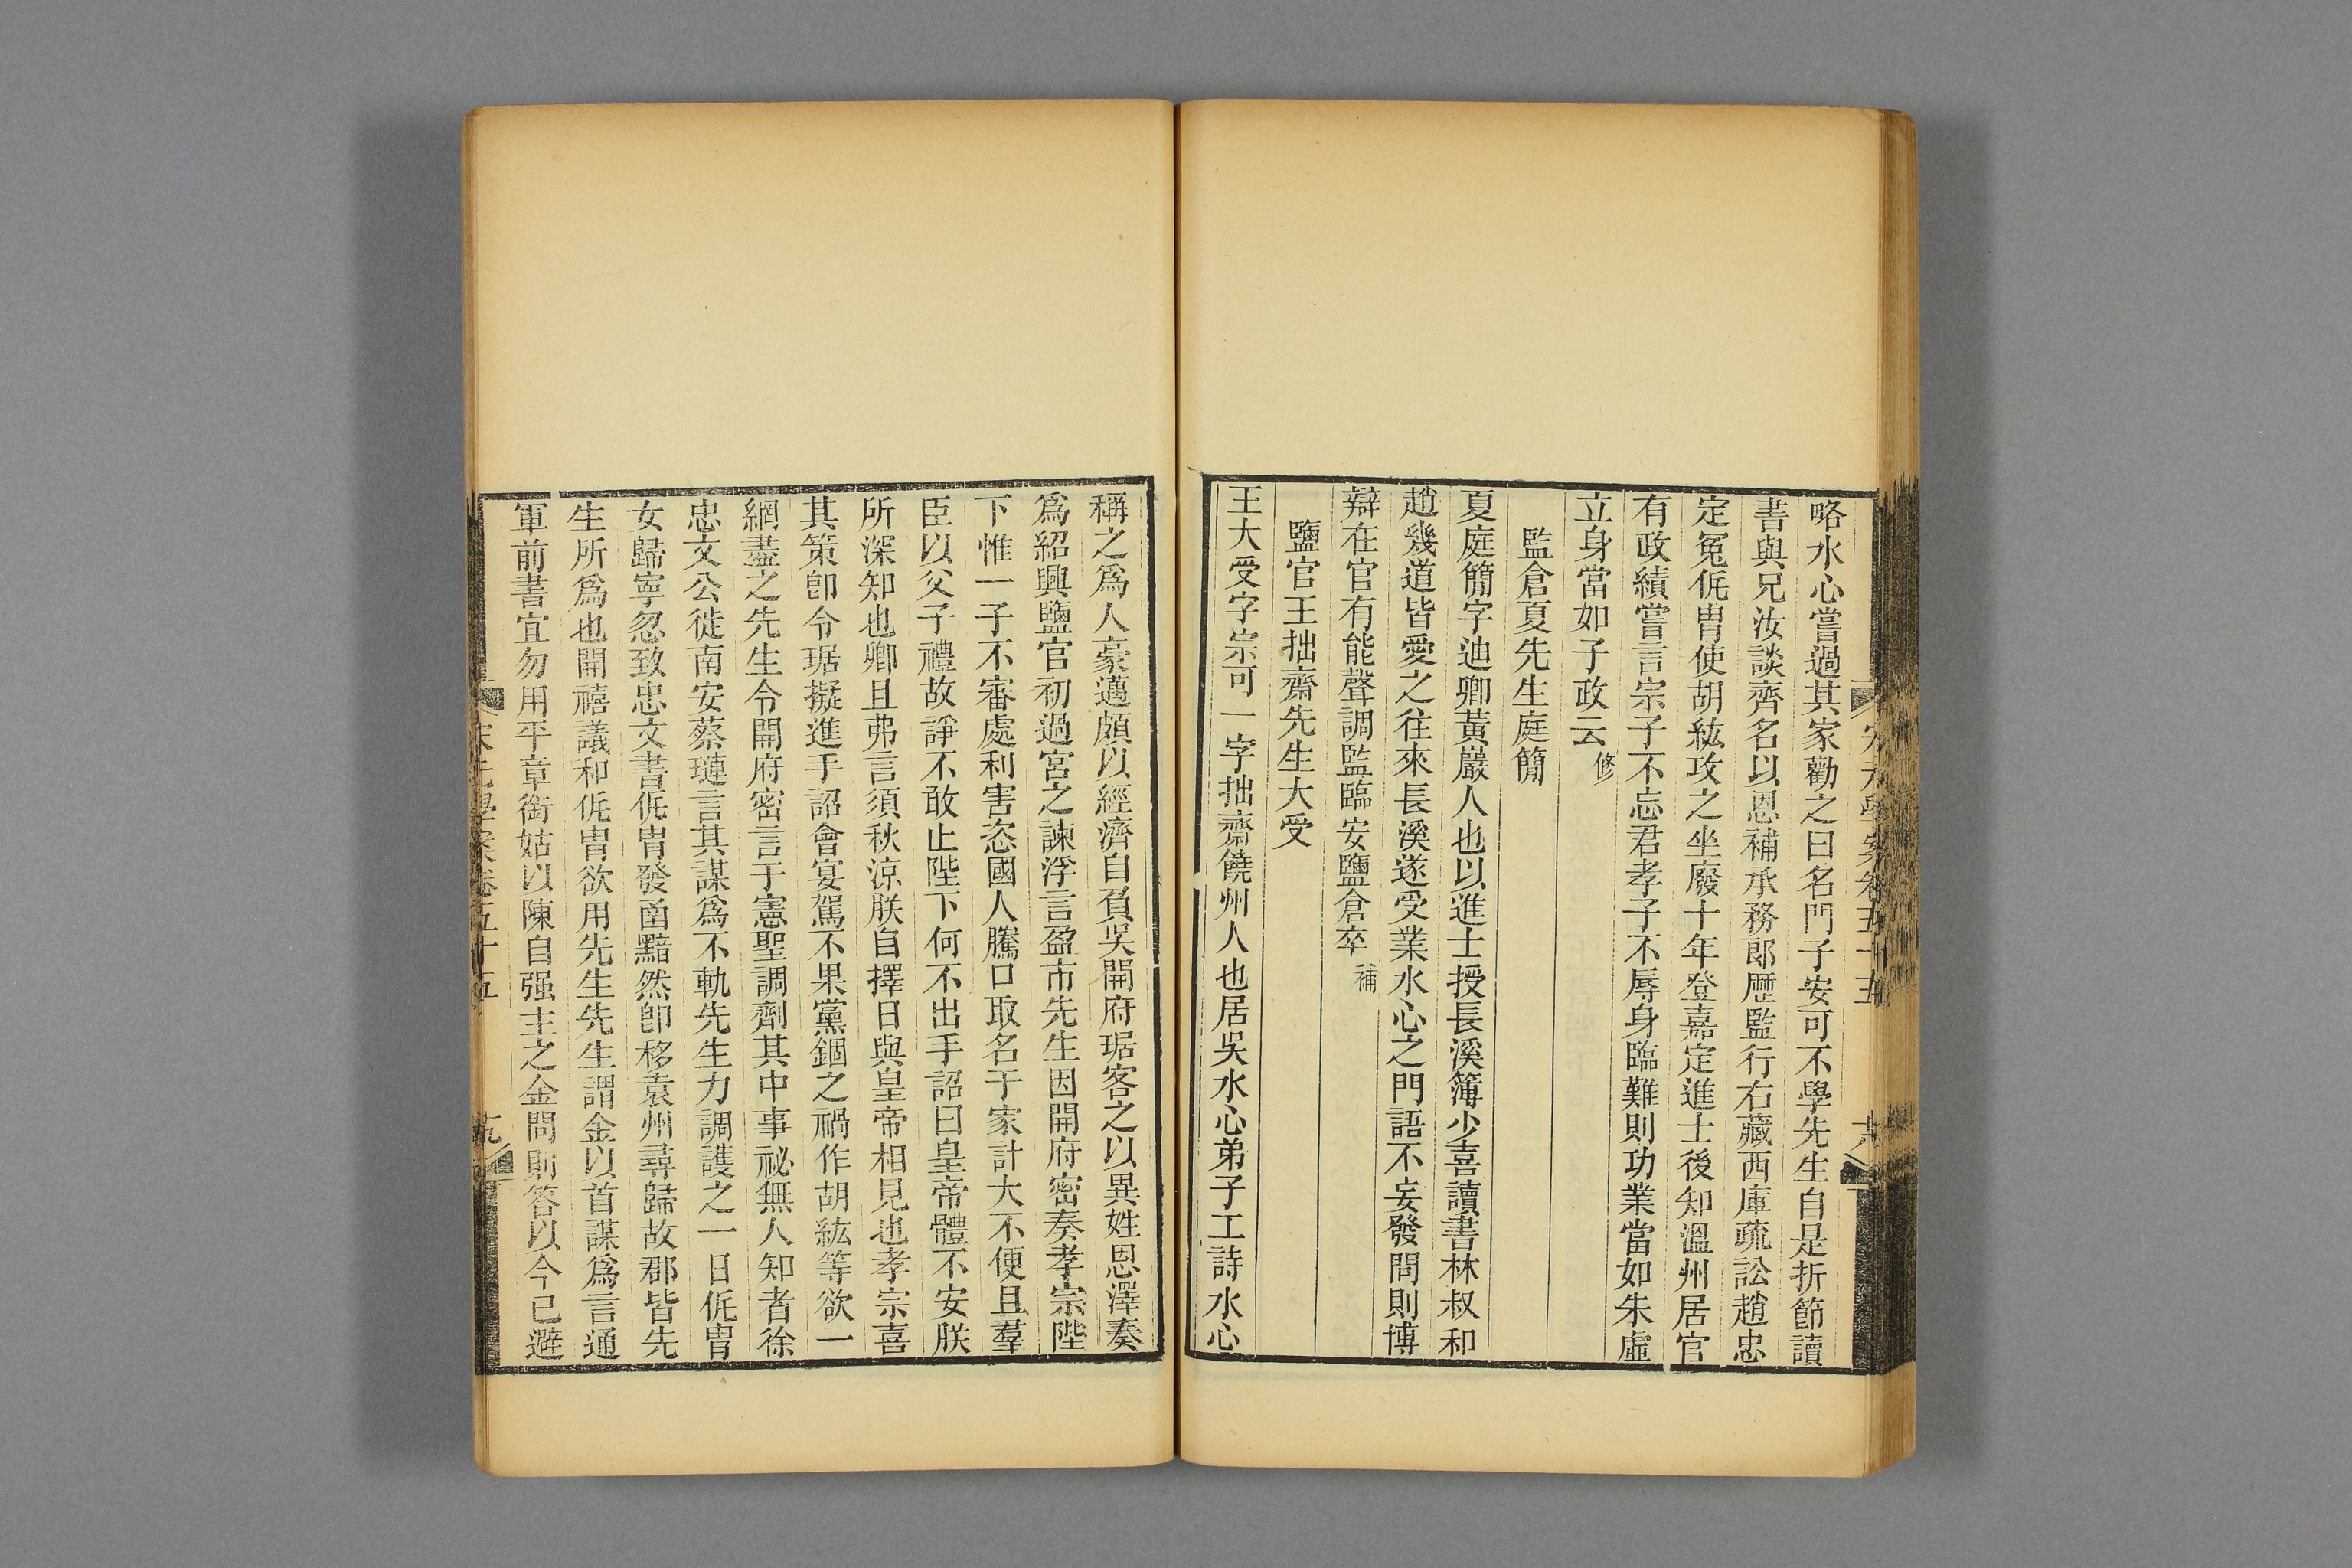 略水心嘗過其家勸之曰名門子安可不學先生自是折節讀
書與兄汝談齊名以恩補承務郎歷監行右藏西庫疏訟趙忠
定冤侂胄使胡紘攻之坐廢十年登嘉定進士後知溫州居官
有政績嘗言宗子不忘君孝子不辱身臨難則功業當如朱虛
立身當如子政云修
監倉夏先生庭簡
夏庭簡字迪卿黃巖人也以進士授長溪簿少喜讀書林叔和
趙幾道皆愛之往來長溪遂受業水心之門語不妄發問則博
辯在官有能聲調監臨安鹽倉卒補
鹽官王拙齋先生大受
王大受字宗可一字拙齋饒州人也居吳水心弟子工詩水心
稱之爲人豪邁頗以經濟自負吳開府琚客之以異姓恩澤奏
爲紹興鹽官初過宮之諫浮言盈市先生因開府密奏孝宗陛
下惟一子不審處利害恣國人騰口取名于家計大不便且羣
臣以父子禮故諍不敢止陛下何不出手詔曰皇帝體不安朕
所深知也卿且弗言須秋涼朕自擇日與皇帝相見也孝宗喜
其策卽令琚擬進手詔會宴駕不果黨錮之禍作胡紘等欲一
網盡之先生令開府密言于憲聖調劑其中事祕無人知者徐
忠文公徙南安蔡璉言其謀爲不軌先生力調護之一日侂胄
女歸寧忽致忠文書侂胄發函黯然卽移袁州尋歸故郡皆先
生所爲也開禧議和侂胄欲用先生先生謂金以首謀爲言通
軍前書宜勿用平章銜姑以陳自强主之金問則答以今已避
宋元學案卷五十五
十八
宋元學案卷五十五
十九